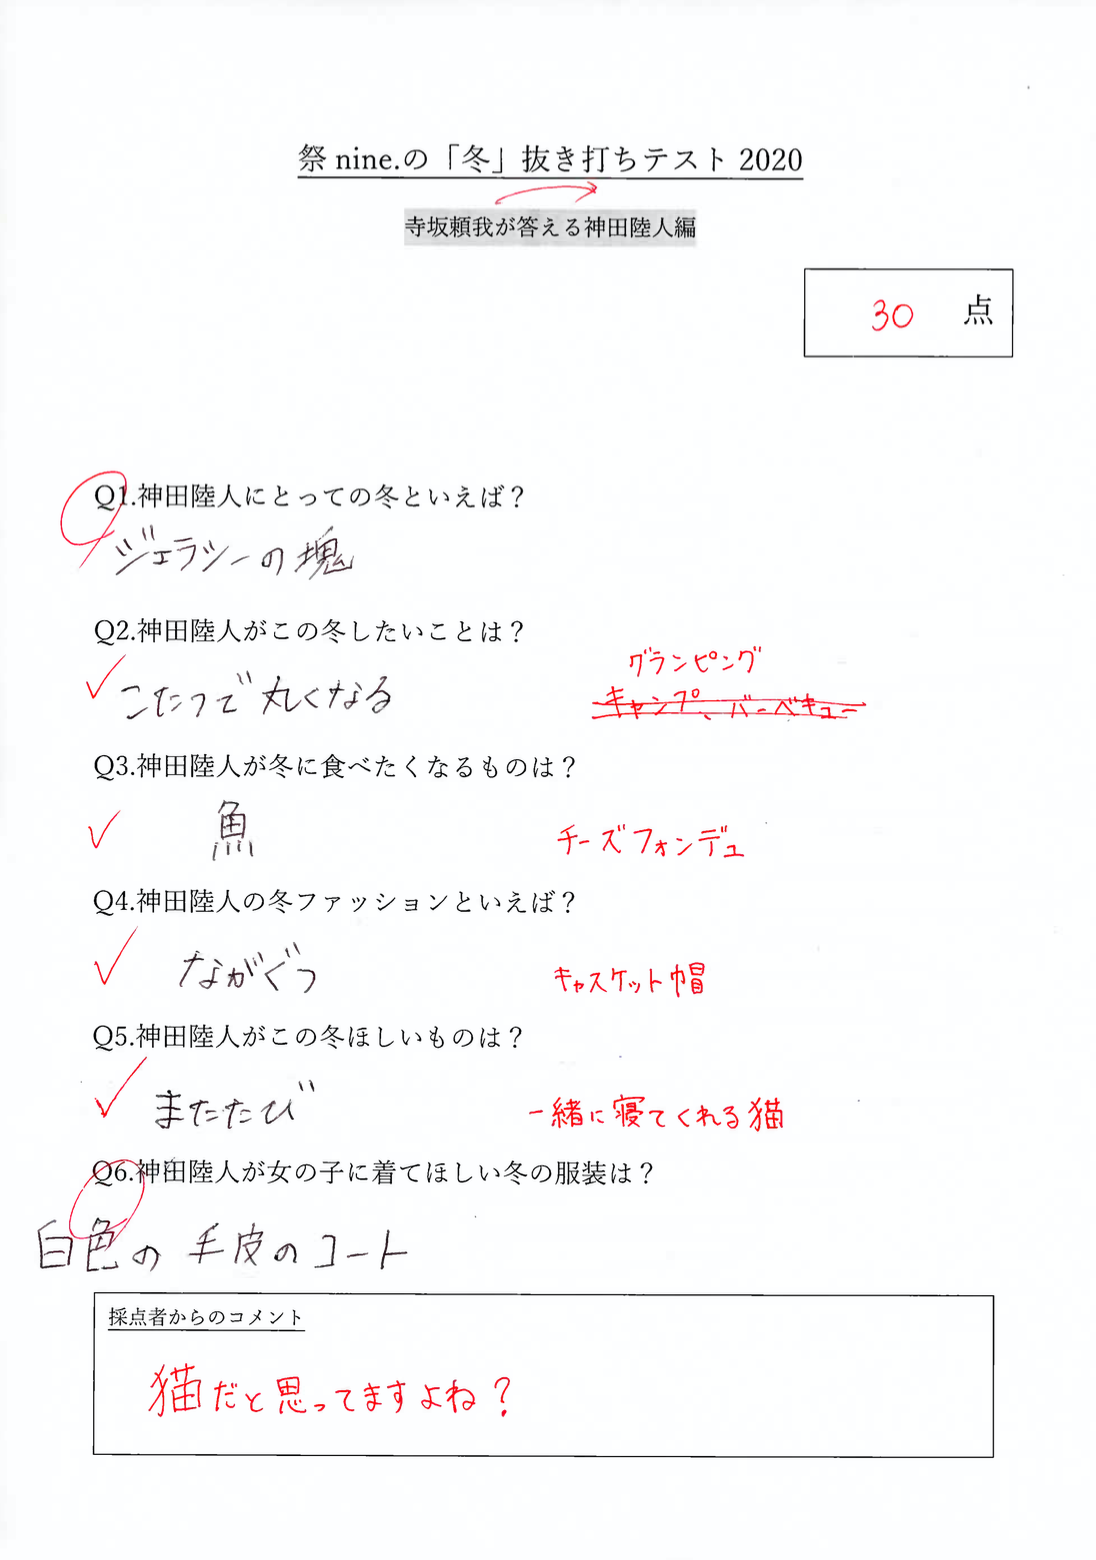 祭nine.の「冬」抜き打ちテスト2020
寺坂頼我が答える神田陸人編
30 点
Q1.神田陸人にとっての冬といえば？
ジェラシーの塊
Q2.神田陸人がこの冬したいことは？
グランピング
こたつで丸くなる
キャンプ、バーベキュー
Q3.神田陸人が冬に食べたくなるものは？
魚
チーズフォンデュ
Q4.神田陸人の冬ファッションといえば？
ながぐつ
キャスケット帽
Q5.神田陸人がこの冬ほしいものは？
またたび
一緒に寝てくれる猫
Q6.神田陸人が女の子に着てほしい冬の服装は？
白色の毛皮のコート
採点者からのコメント
猫だと思ってますよね？